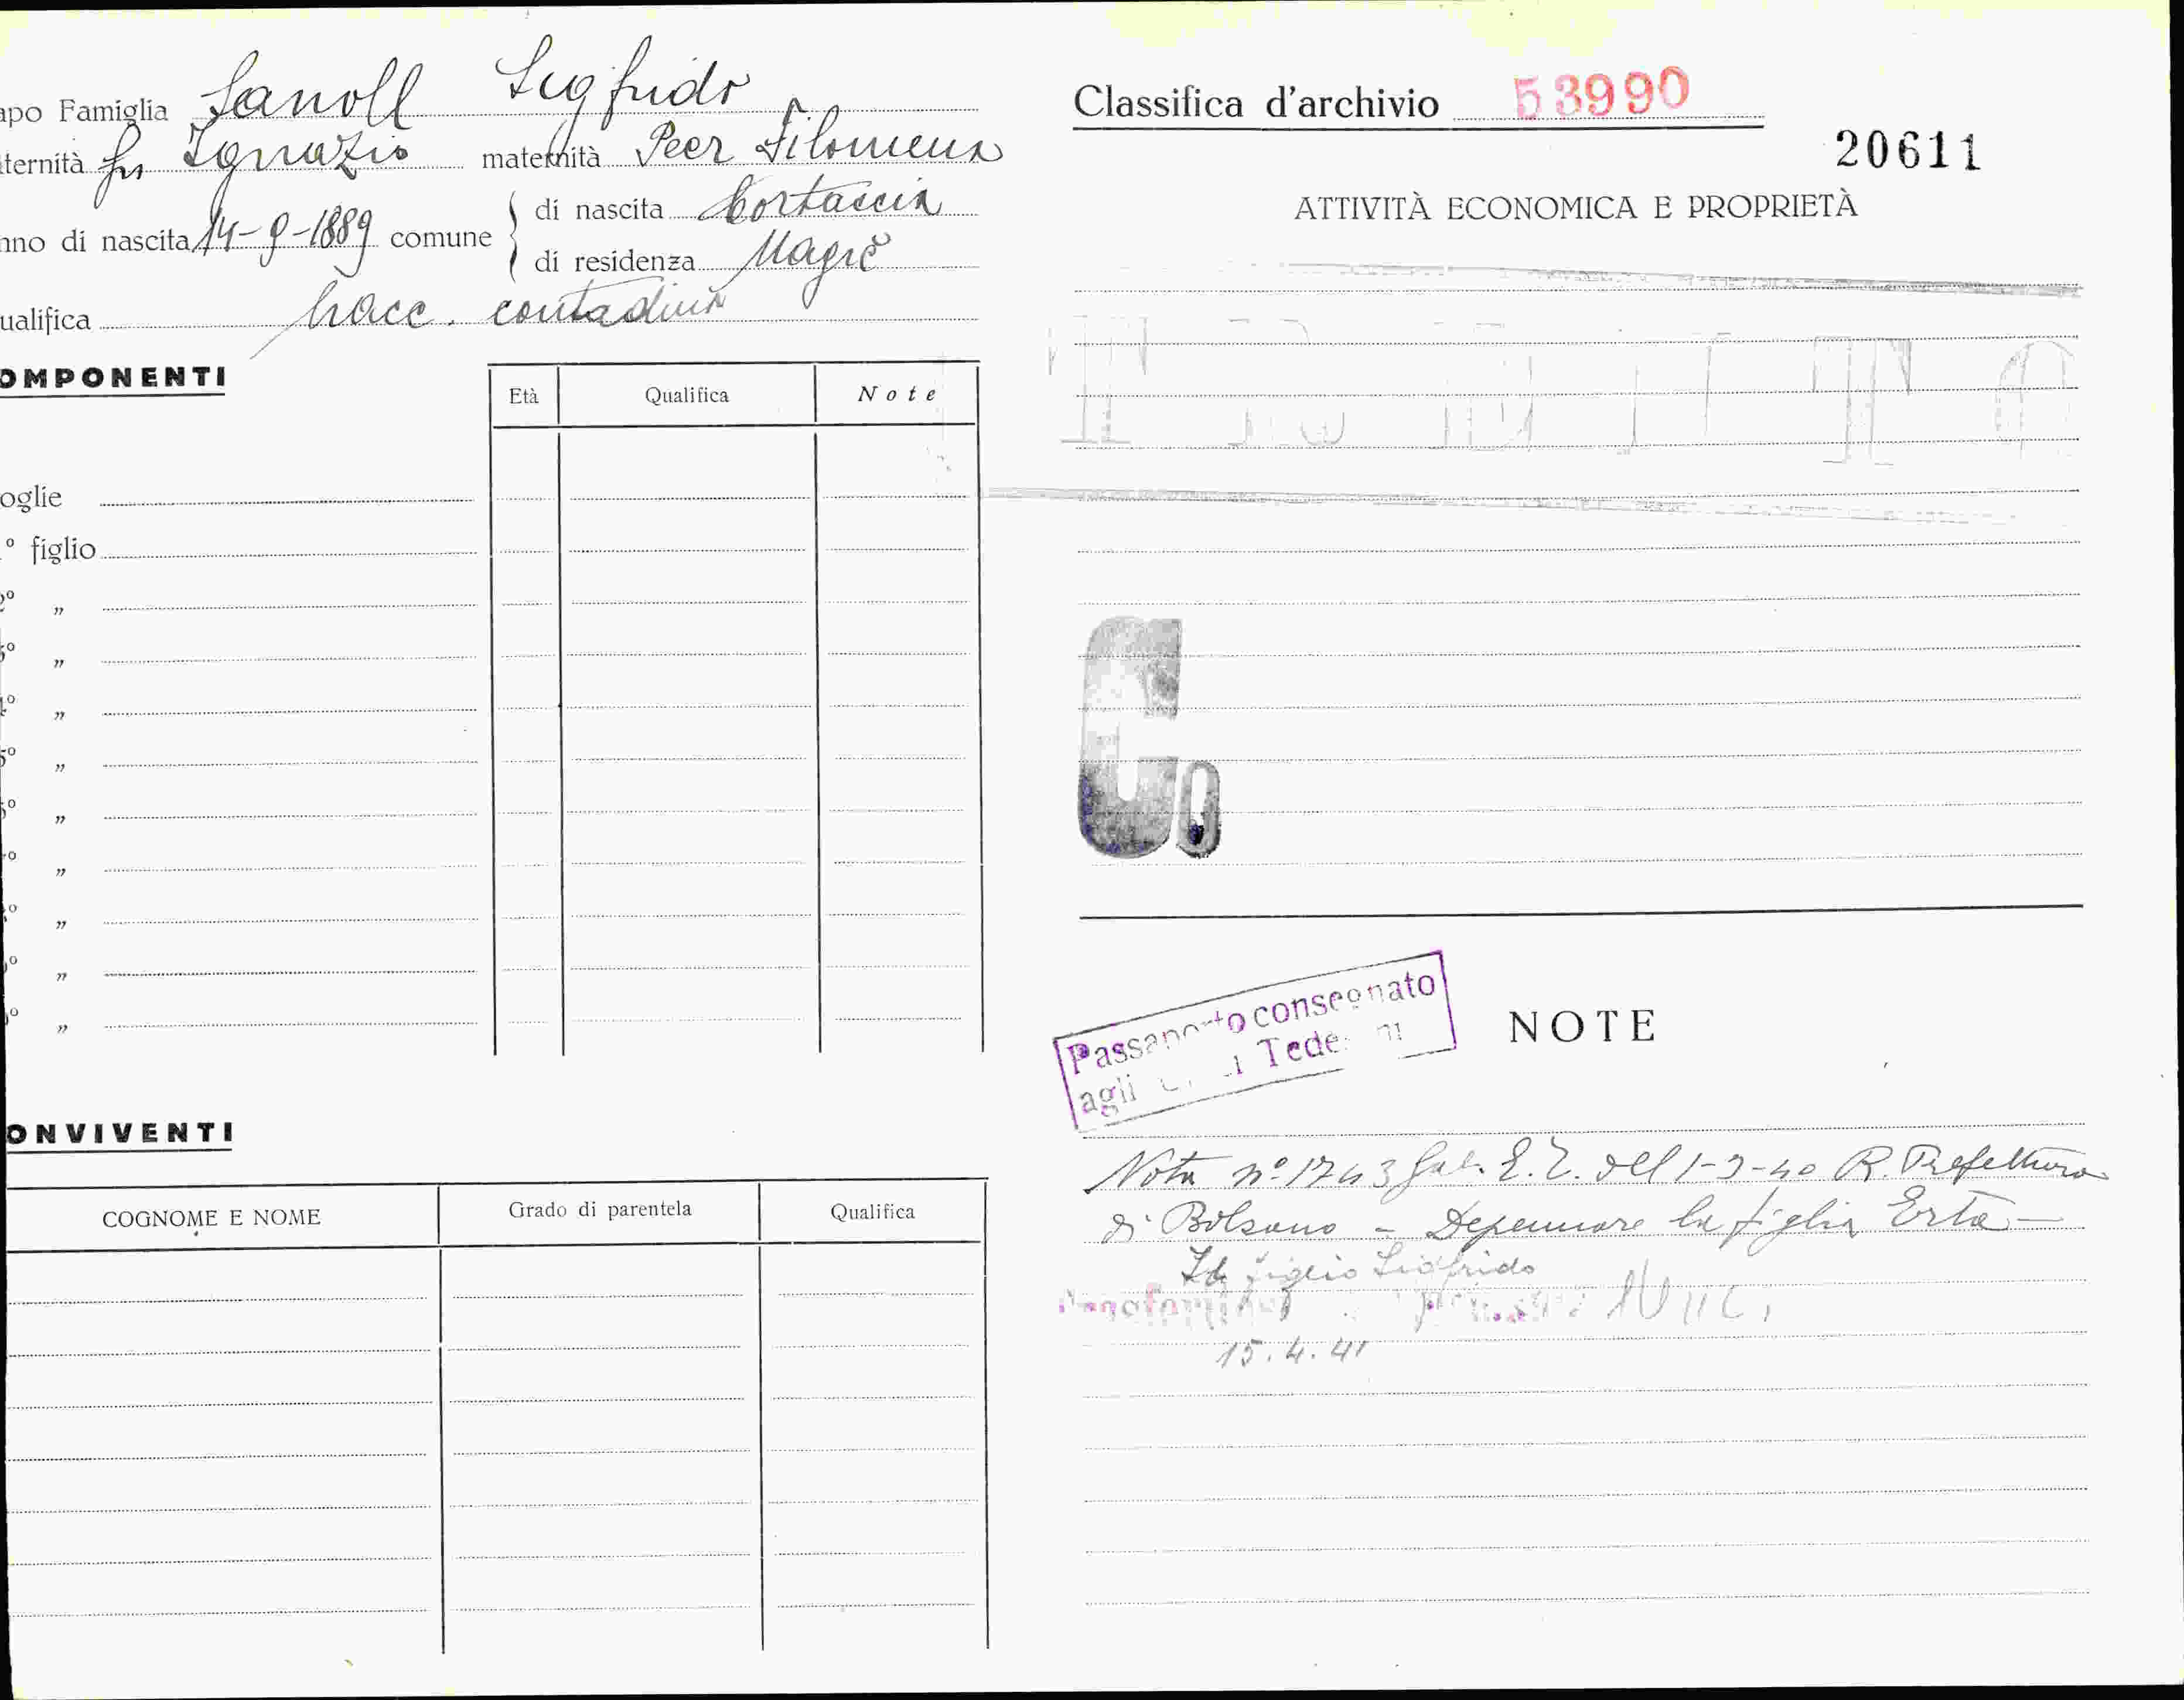 apo Famiglia Sanoll Sigfrido
ternità fu Ignazio maternità Peer Filomena
nno di nascita 14-9-1889 comune di nascita Cortaccia
di residenza Magrè
ualifica bracc. contadino
OMPONENTI
Età Qualifica Note
oglie
° figlio
2° „
3° „
4° „
5° „
6° „
° „
° „
° „
° „
ONVIVENTI
COGNOME E NOME Grado di parentela Qualifica
Classifica d'archivio 53990
20611
ATTIVITÀ ECONOMICA E PROPRIETÀ
Passaporto consegnato
agli Tede
NOTE
Nota nº 1743 Gab. E.Z. del 1-3-40 R. Prefettura
di Bolzano - Depennare la figlia Erta -
Id figlio Sigfrido
15.4.41